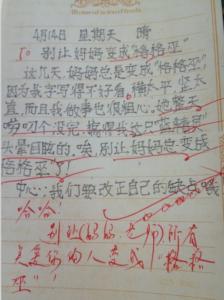 4月14日 星期天 晴
别让妈妈变成“格格巫”
这几天,妈妈也是变成“格格巫”
因为我字写得不好看,横不平,竖不
直,而且我做事也很粗心。她整天
唠叨个没完,
头晕目眩的。唉,别让妈妈也变成
格格巫”了!
中心:我们要改正自己的缺点哦
哈哈!
别让(妈妈、老师)所有
关爱你的人变成“格格
巫”!